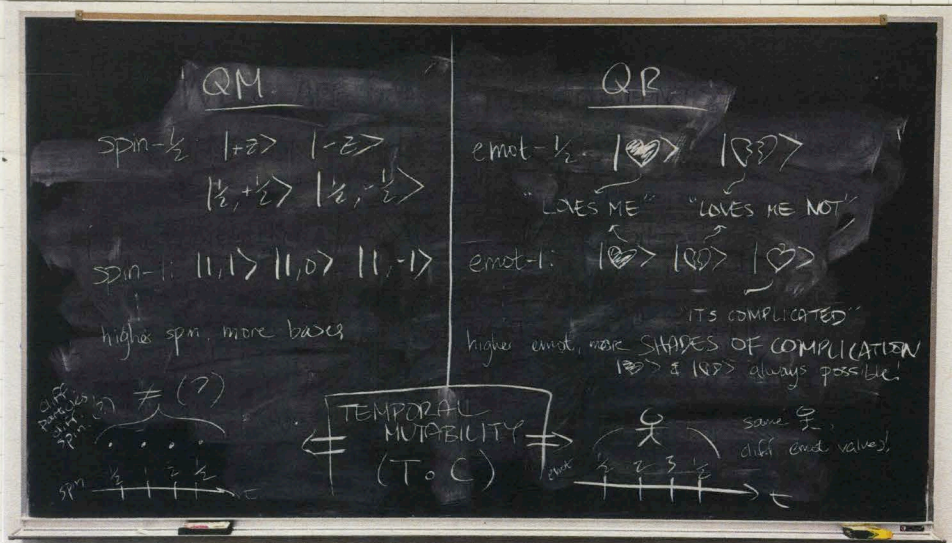 QM
spin-½ |+z> |-z>
|½,+½> |½,-½>
spin-1: |1,1> |1,0> |1,-1>
higher spin, more bases
≠ (?)
spin ½ 1 2 ½ t
TEMPORAL
MUTABILITY
(T.C)
QR
emot-½ |♥> |💔>
"LOVES ME" "LOVES ME NOT"
emot-1: |♥> |💔> |♡>
"ITS COMPLICATED"
higher emot, more SHADES OF COMPLICATION
|♥> & |💔> always possible!
same
diff emot values!
emot ½ 2 3 ½ t